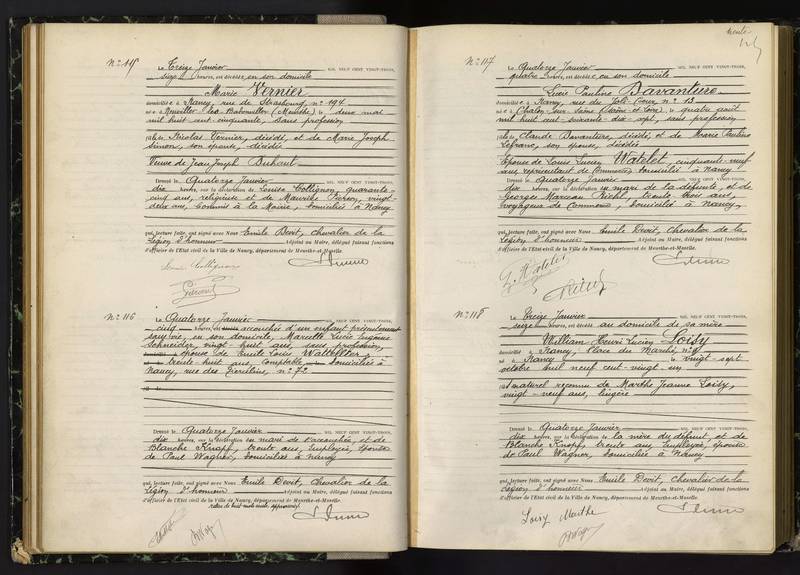 N° 115
Le Treize Janvier MIL NEUF CENT VINGT-TROIS,
seize heures, est décédé en son domicile
Marie Vernier
domiciliée à Nancy, rue de Strasbourg, n° 194
née à (Meurthe) le deux mai
mil huit cent cinquante, sans profession
fille de Nicolas Vernier, décédé, et de Marie Joseph
Simon, son épouse, décédée
Veuve de Jean Joseph Duhaut
Dressé le Quatorze Janvier MIL NEUF CENT VINGT-TROIS,
dix heures, sur la déclaration de Louise Collignon, quarante-
cinq ans, religieuse et de Maurice Pierson, vingt-
deux ans, commis à la Mairie, domiciliés à Nancy
qui, lecture faite, ont signé avec Nous Emile Devit, Chevalier de la
Légion d'honneur Adjoint au Maire, délégué faisant fonctions
d'officier de l'Etat civil de la Ville de Nancy, département de Meurthe-et-Moselle.
Louise Collignon
N° 116
Le Quatorze Janvier MIL NEUF CENT VINGT-TROIS,
cinq heures, est accouchée d'un enfant présentement
sans vie, en son domicile, Marcelle Lucie Eugénie
Schneider, vingt-huit ans, sans profession,
épouse de Emile Louis
trente-huit ans, Comptable, domiciliés à
Nancy, rue des Tiercelins, n° 72
Dressé le Quatorze Janvier MIL NEUF CENT VINGT-TROIS,
dix heures, sur la déclaration du mari de l'accouchée, et de
Blanche Knopf, trente ans, employée, épouse
de Paul Wagner, domiciliés à Nancy
qui, lecture faite, ont signé avec Nous Emile Devit, Chevalier de la
Légion d'honneur Adjoint au Maire, délégué faisant fonctions
d'officier de l'Etat civil de la Ville de Nancy, département de Meurthe-et-Moselle.
N° 117
Le Quatorze Janvier MIL NEUF CENT VINGT-TROIS,
quatre heures, est décédée en son domicile
Lucie Pauline Bavanture
domiciliée à Nancy, rue du Joli Coeur, n° 13
née à Chalon sur Saône (Saône et Loire) le quatre août
mil huit cent soixante dix sept, sans profession
fille de Claude Bavanture, décédé, et de Marie Pauline
Lefranc, son épouse, décédée
Epouse de Louis Lucien Watelet, cinquante-neuf
ans, représentant de Commerce, domicilié à Nancy
Dressé le Quatorze Janvier MIL NEUF CENT VINGT-TROIS,
dix heures, sur la déclaration du mari de la défunte, et de
Georges Marceau Richl, trente trois ans,
voyageur de Commerce, domiciliés à Nancy,
qui, lecture faite, ont signé avec Nous Emile Devit, Chevalier de la
Légion d'honneur Adjoint au Maire, délégué faisant fonctions
d'officier de l'Etat civil de la Ville de Nancy, département de Meurthe-et-Moselle.
N° 118
Le Treize Janvier MIL NEUF CENT VINGT-TROIS,
seize heures, est décédé au domicile de sa mère
William Henri Lucien Loisy
domicilié à Nancy, Place du Marché, n°
né à Nancy le vingt-sept
octobre mil neuf cent-vingt-un
fils naturel reconnu de Marthe Jeanne Loisy,
vingt-neuf ans, lingère
Dressé le Quatorze Janvier MIL NEUF CENT VINGT-TROIS,
dix heures, sur la déclaration de la mère du défunt, et de
Blanche Knopf, trente ans, employée, épouse
de Paul Wagner, domiciliés à Nancy
qui, lecture faite, ont signé avec Nous Emile Devit, Chevalier de la
Légion d'honneur Adjoint au Maire, délégué faisant fonctions
d'officier de l'Etat civil de la Ville de Nancy, département de Meurthe-et-Moselle.
Loisy Marthe